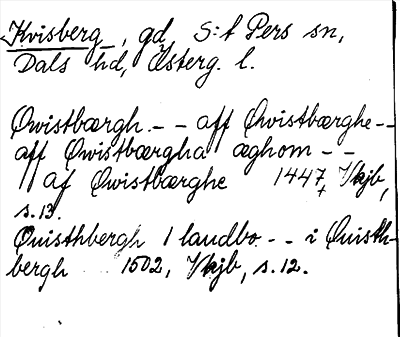 Kvisberg, gd, S:t Pers sn,
Dals hd, Österg. l.
Qwistbærgh - - aff Qwistbærghe - -
aff Qwistbærgha æghom - -
af Qwistbærghe 1447, Vkjb,
s. 13.
Quisthbergh 1 landbo - - i Quisth-
bergh 1502, Vkjb, s. 12.